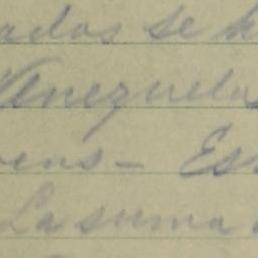 ados se h
Venezuela
vens- Es
La suma